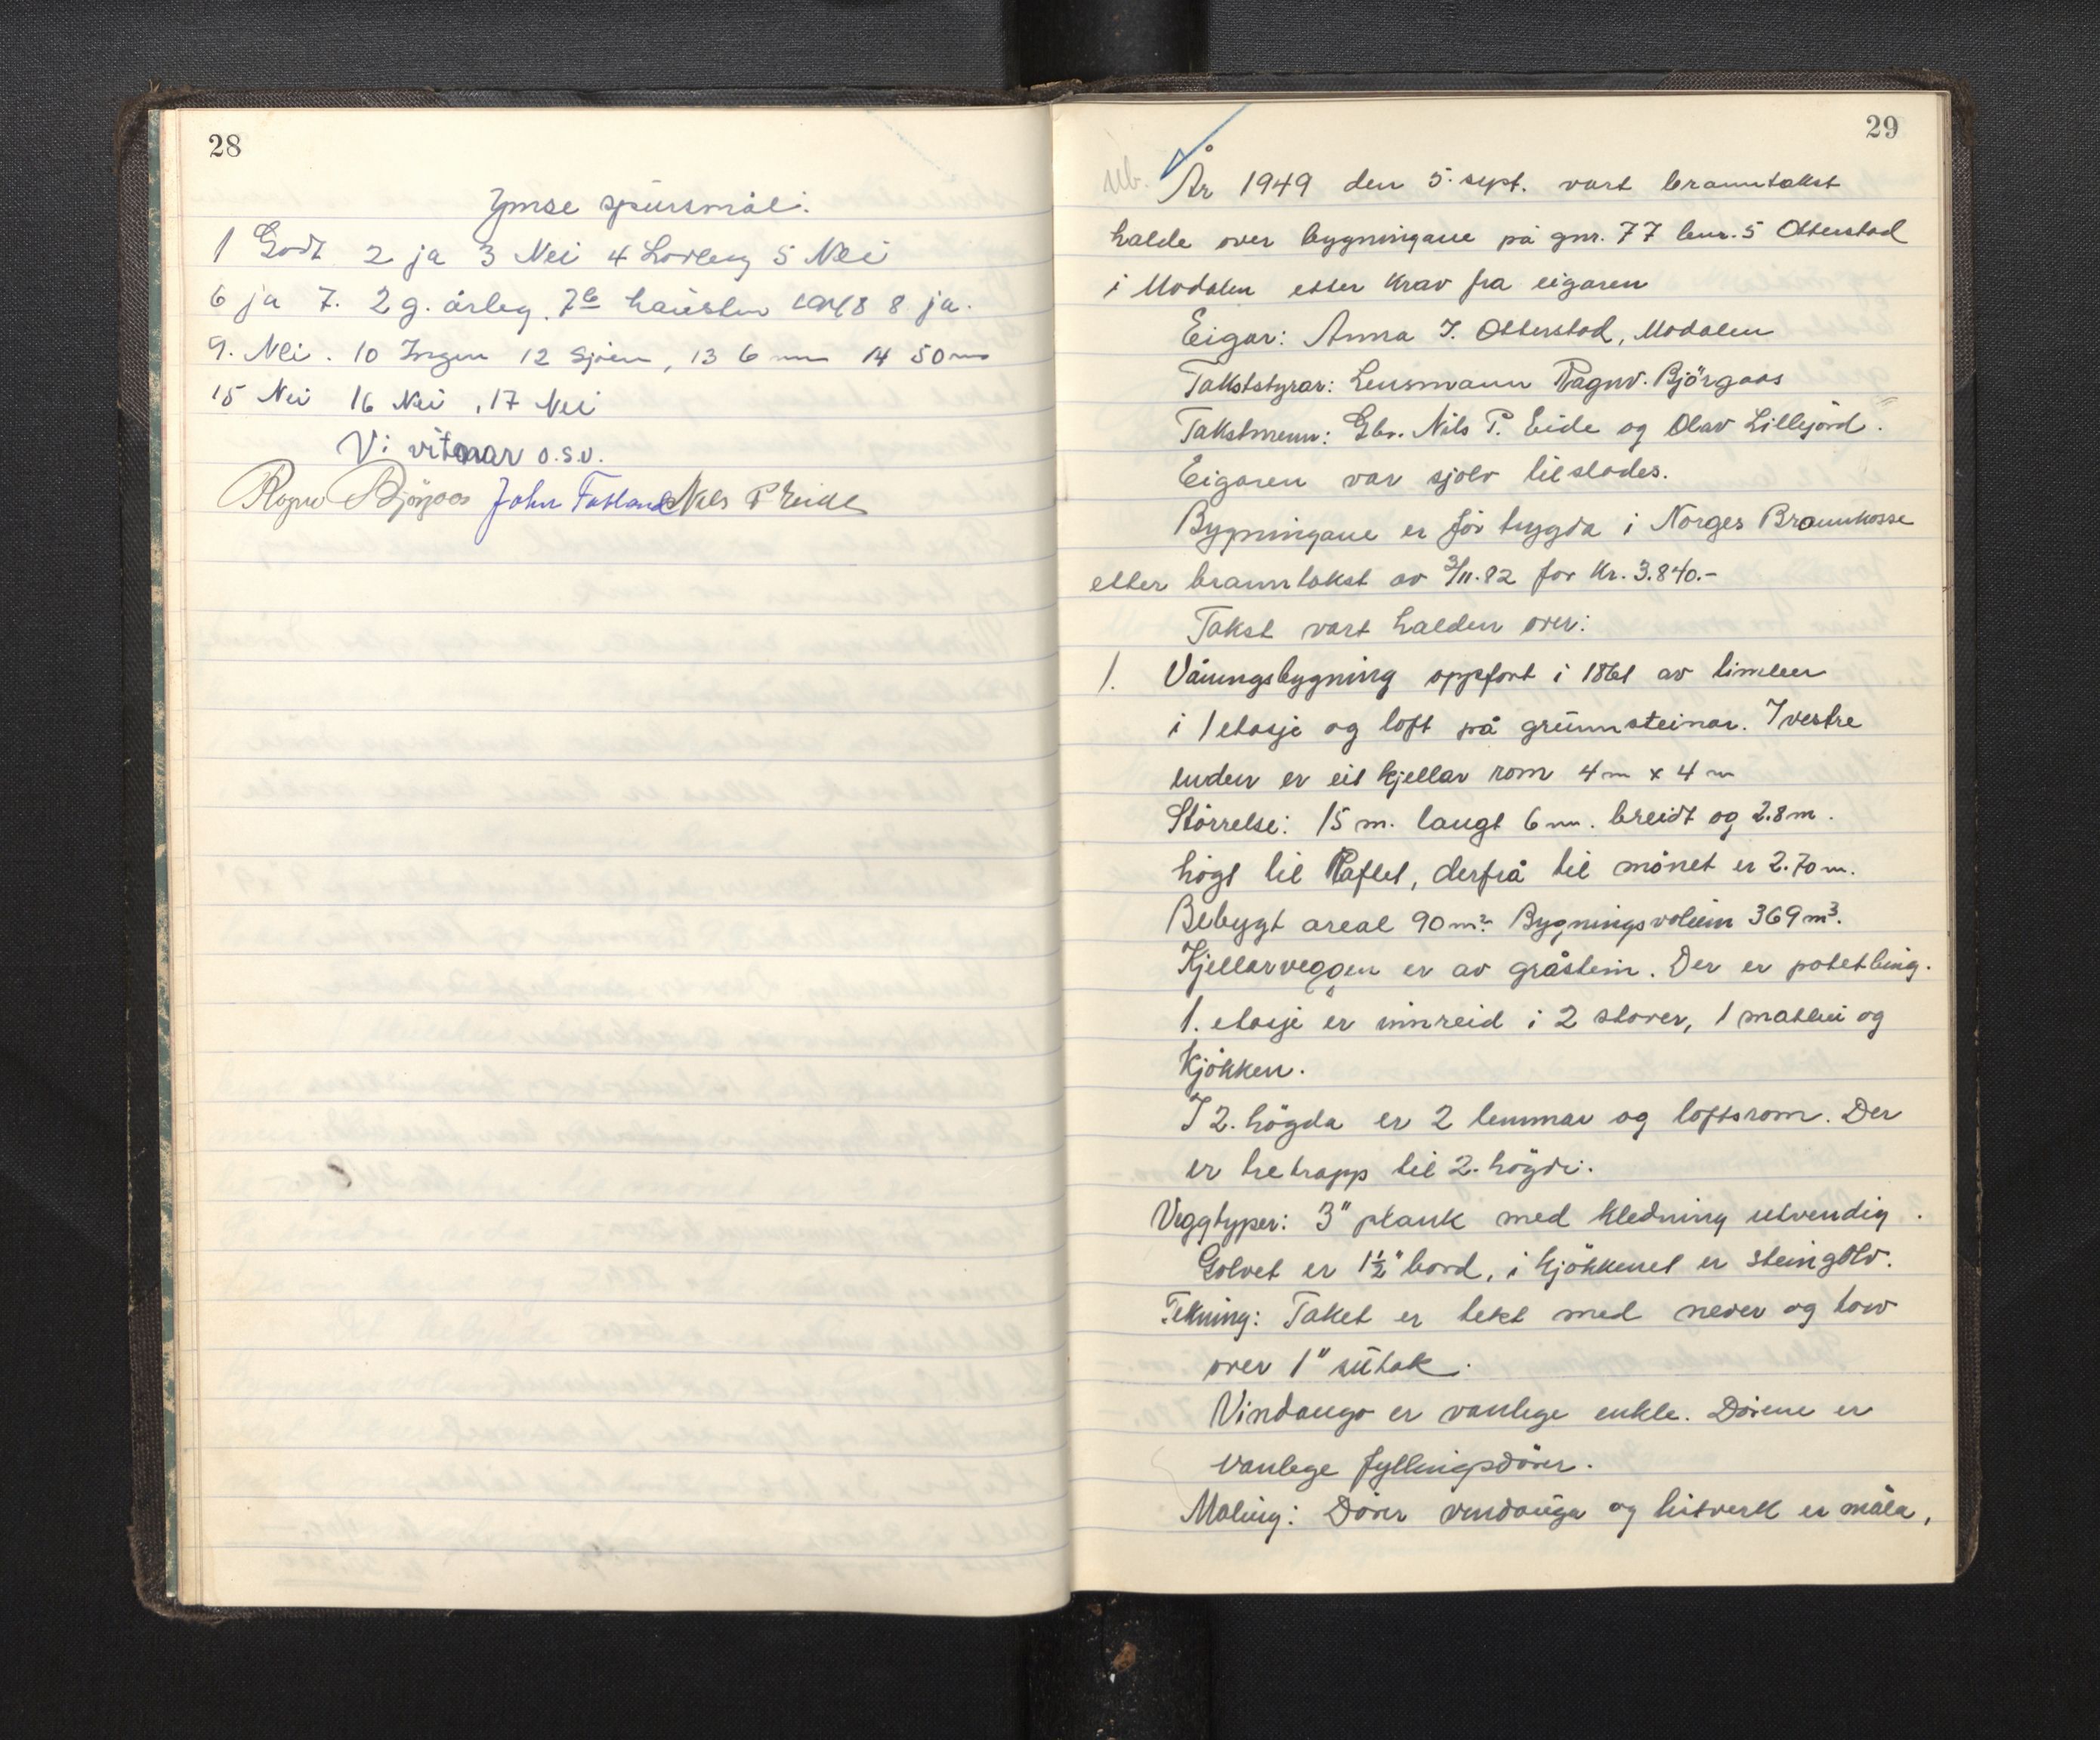 28
Ymse spursmål.
1 Godt 2 ja 3 Nei 4 Lovleg 5 Nei
6 ja 7. 2 g. årleg. 7b hausten 1948 8 ja.
9. Nei. 10 Ingen 12 Sjöen, 13 6 m 14 50 m
15 Nei 16 Nei, 17 Nei
Vi vitnar o.s.v.
Ragnv Björgaas John Fatland Nils P Eide
29
ub. År 1949 den 5. sept. vart branntakst
halde over bygningane på gnr. 77 bnr. 5 Otterstad
i Modalen etter krav fra eigaren
Eigar: Anna I. Otterstad, Modalen
Takststyrar: Lensmann Ragnv. Björgaas
Takstmenn: Gbr. Nils P. Eide og Olav Lillejord.
Eigaren var sjølv tilstades.
Bygningane er för trygda i Norges Brannkasse
etter branntakst av 3/11.82 for kr. 3.840.-
Takst vart halden over:
1. Våningsbygning oppfört i 1861 av timber
i 1 etasje og loft på grunnsteinar. I vestre
enden er eit kjellar rom 4 m x 4 m
Störrelse: 15 m. langt 6 m. breidt og 2.8 m.
högt til Raftet, derfrå til mönet er 2.70 m.
Bebygt areal 90 m2. Bygningsvolum 369 m3.
Kjellarveggen er av gråstein. Der er potetbing.
1. etasje er innreid i 2 stover, 1 matbu og
kjökken.
I 2. högda er 2 lemmar og loftsrom. Der
er tretrapp til 2. högdi.
Veggtyper: 3" plank med kledning utvendig.
Golvet er 1½" bord, i kjökkenet er steingolv.
Tekning: Taket er tekt med never og torv
over 1" sutak.
Vindaugo er vanlege enkle. Dörene er
vanlege fyllingsdörer.
Maling: Dörer vindauga og listverk er måla,